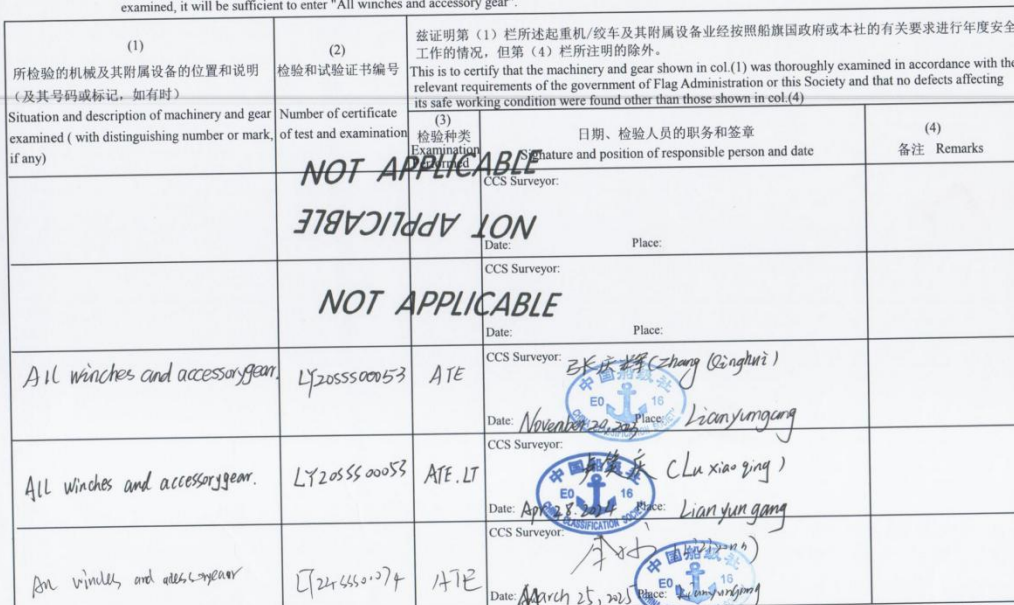 examined, it will be sufficient to enter "All winches and accessory gear".
(1)
所检验的机械及其附属设备的位置和说明
（及其号码或标记，如有时）
Situation and description of machinery and gear
examined ( with distinguishing number or mark,
if any)
(2)
检验和试验证书编号
Number of certificate
of test and examination
兹证明第（1）栏所述起重机/绞车及其附属设备业经按照船旗国政府或本社的有关要求进行年度安全
工作的情况，但第（4）栏所注明的除外。
This is to certify that the machinery and gear shown in col.(1) was thoroughly examined in accordance with the
relevant requirements of the government of Flag Administration or this Society and that no defects affecting
its safe working condition were found other than those shown in col.(4)
(3)
检验种类
Examination
performed
日期、检验人员的职务和签章
Signature and position of responsible person and date
(4)
备注 Remarks
NOT APPLICABLE
CCS Surveyor:
NOT APPLICABLE
Date: Place:
CCS Surveyor:
NOT APPLICABLE
Date: Place:
All winches and accessory gear.
LY20SSS00053
ATE
CCS Surveyor: 张庆辉 (Zhang Qinghui)
中国船级社
E0 16
Date: November 20, Place: Lianyungang
All winches and accessory gear.
LY20SSS00053
ATE.LT
CCS Surveyor: (Lu xiao qing)
中国船级社
E0 16
CHINA CLASSIFICATION SOCIETY
Date: Apr 28. 2024 Place: Lianyungang
All winches and
ATE
CCS Surveyor:
中国船级社
E0 16
Date: March 25, 2025 Place: Lianyungang